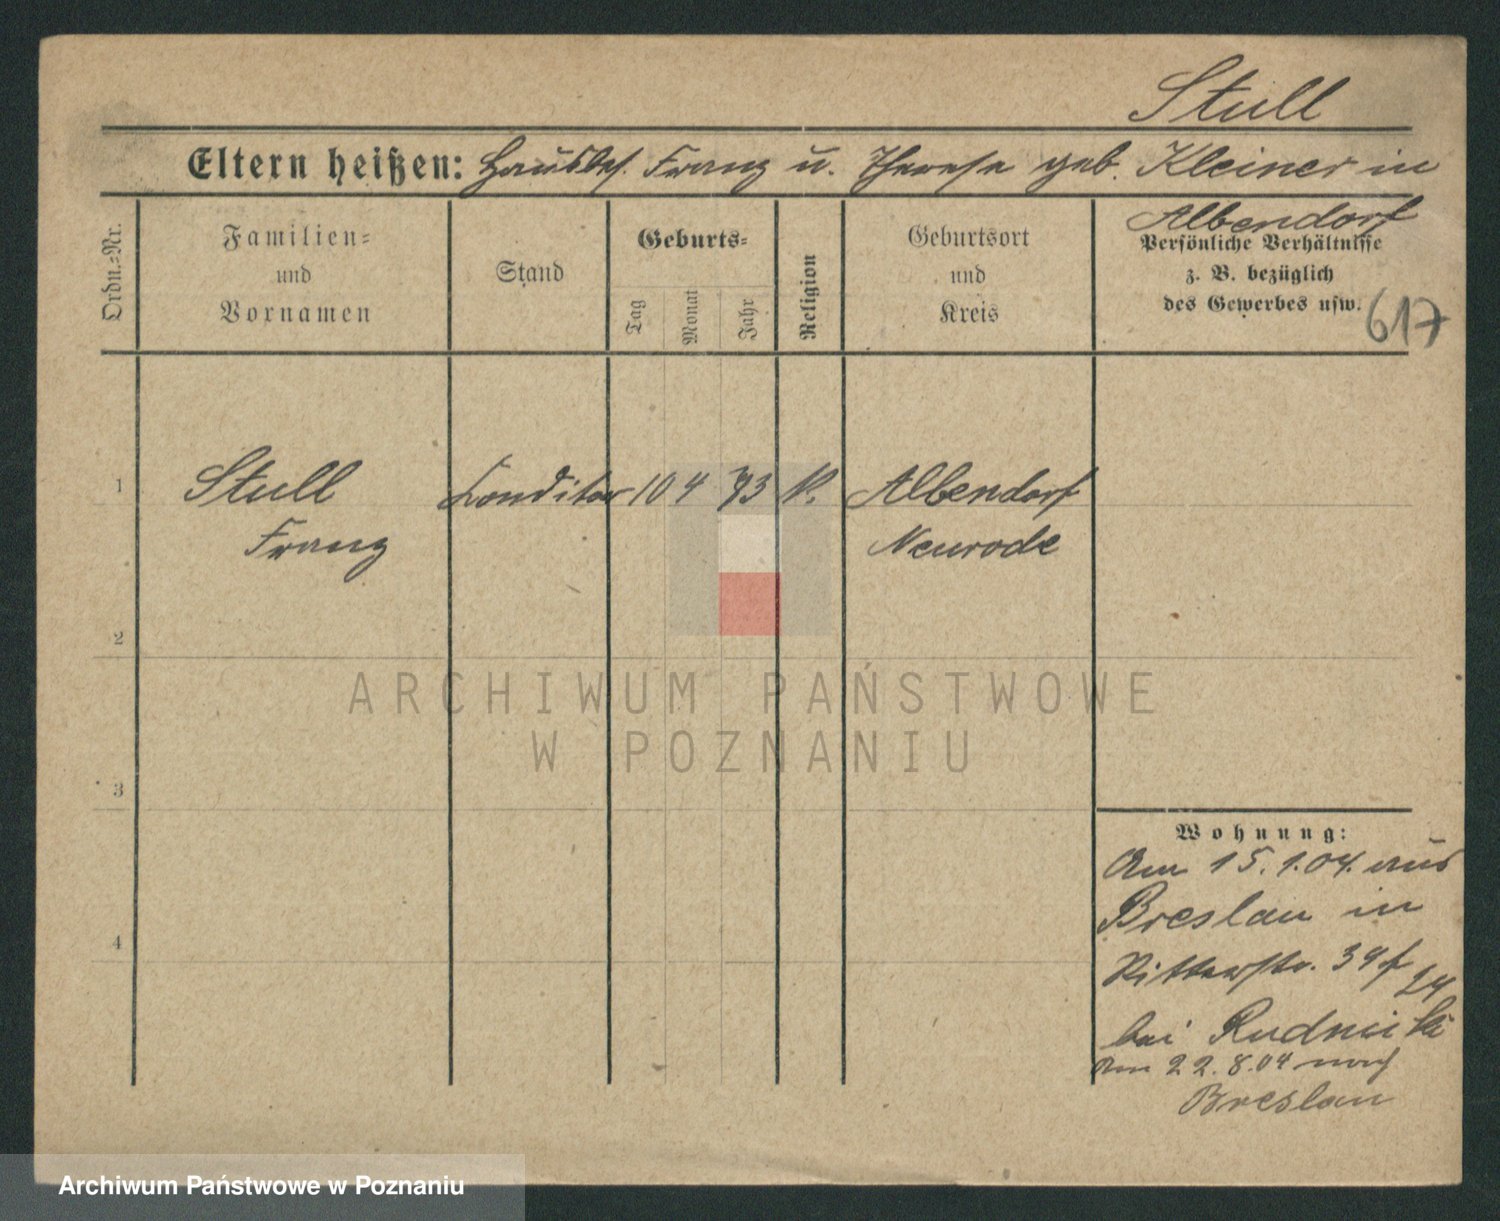 Stull
Eltern heißen: Hausbes. Franz u. Therese geb. Kleiner in
Albendorf
Ordn.=Nr.
Familien=
und
Vornamen
Stand
Geburts=
Tag
Monat
Jahr
Religion
Geburtsort
und
Kreis
Persönliche Verhältnisse
z. B. bezüglich
des Gewerbes usw.
617
1 Stull Conditor 10 4 73 K. Albendorf
Franz Neurode
2
3
4
ARCHIWUM PAŃSTWOWE
W POZNANIU
Wohnung:
Am 15.1.04. aus
Breslau in
Ritterstr.
bei Rudnicki
Am 22.8.04 nach
Breslau
Archiwum Państwowe w Poznaniu